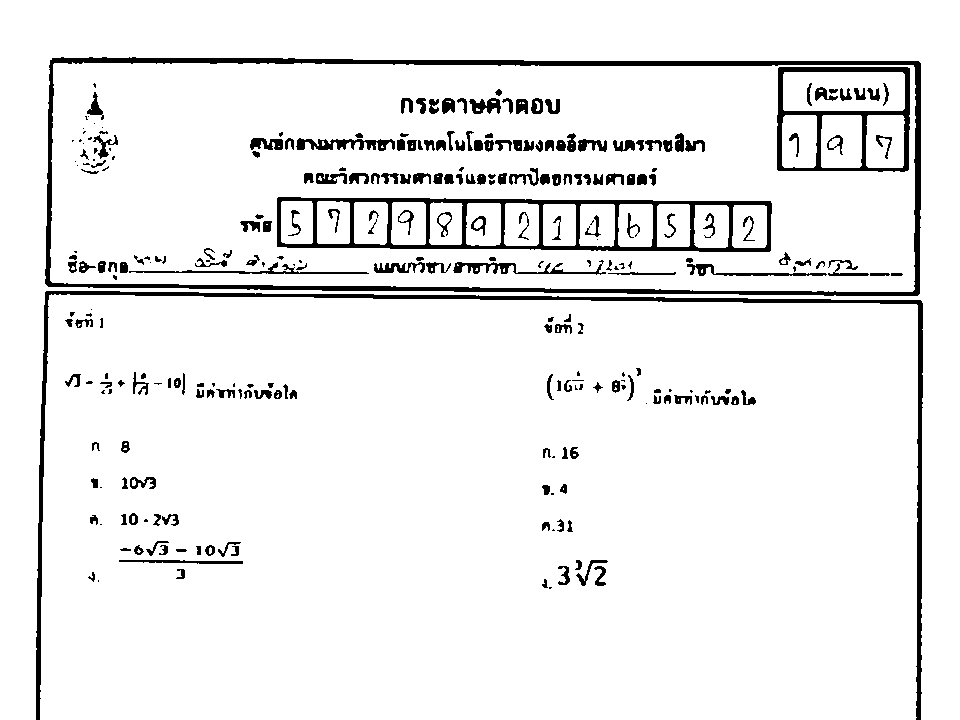 (คะแนน)
197
กระดาษคำตอบ
ศูนย์กลางมหาวิทยาลัยเทคโนโลยีราชมงคลอีสาน นครราชสีมา
คณะวิศวกรรมศาสตร์และสถาปัตยกรรมศาสตร์
รหัส 5729892146532
ชื่อ-สกุล นาย แผนกวิชา/สาขาวิชา วิชา
ข้อที่ 1
มีค่าเท่ากับข้อใด
ก 8
ข. 10√3
ค. 10 - 2√3
ง. (-6√3 - 10√3)/3
ข้อที่ 2
มีค่าเท่ากับข้อใด
ก. 16
ข. 4
ค.31
ง. 3∛2